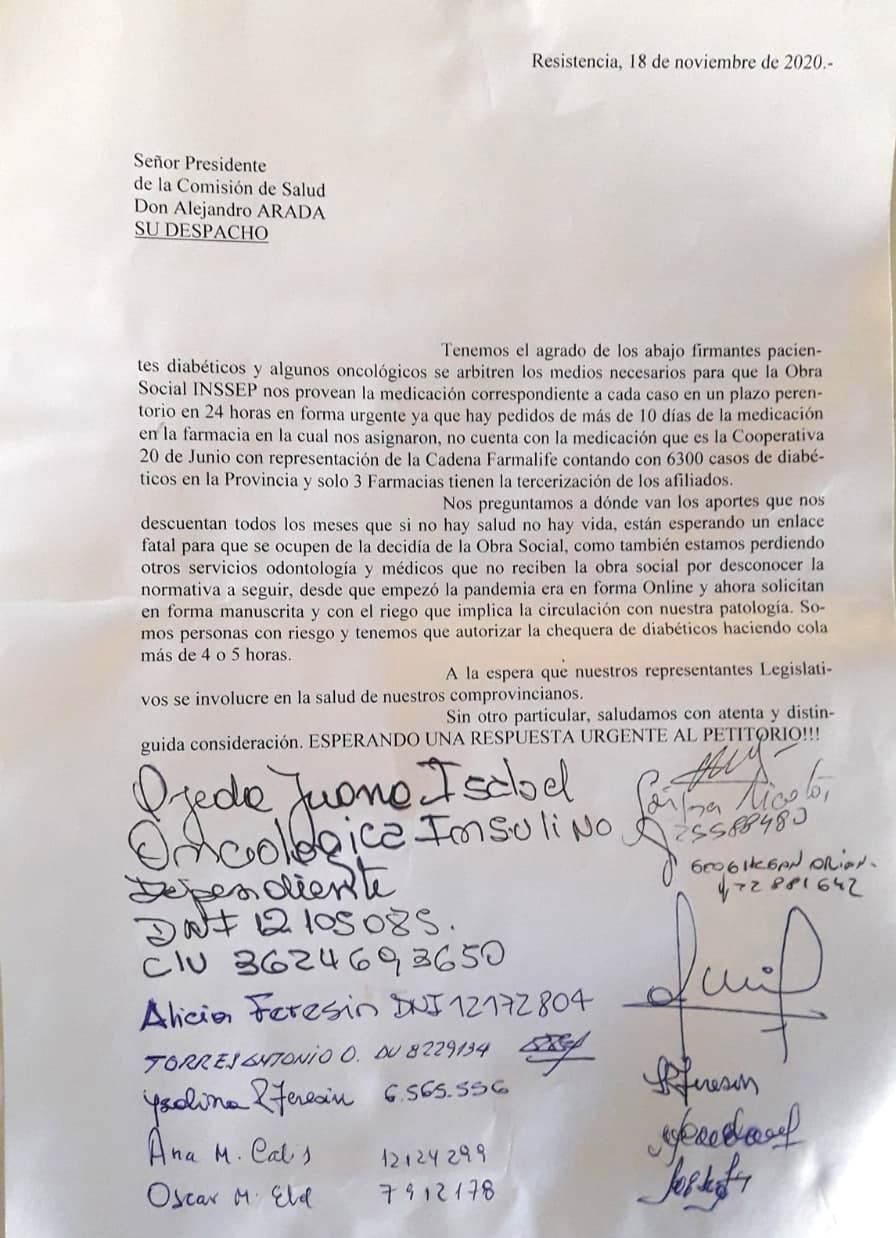 Resistencia, 18 de noviembre de 2020.-
Señor Presidente
de la Comisión de Salud
Don Alejandro ARADA
SU DESPACHO
Tenemos el agrado de los abajo firmantes pacien-
tes diabéticos y algunos oncológicos se arbitren los medios necesarios para que la Obra
Social INSSEP nos provean la medicación correspondiente a cada caso en un plazo peren-
torio en 24 horas en forma urgente ya que hay pedidos de más de 10 días de la medicación
en la farmacia en la cual nos asignaron, no cuenta con la medicación que es la Cooperativa
20 de Junio con representación de la Cadena Farmalife contando con 6300 casos de diabé-
ticos en la Provincia y solo 3 Farmacias tienen la tercerización de los afiliados.
Nos preguntamos a dónde van los aportes que nos
descuentan todos los meses que si no hay salud no hay vida, están esperando un enlace
fatal para que se ocupen de la decidía de la Obra Social, como también estamos perdiendo
otros servicios odontología y médicos que no reciben la obra social por desconocer la
normativa a seguir, desde que empezó la pandemia era en forma Online y ahora solicitan
en forma manuscrita y con el riego que implica la circulación con nuestra patología. So-
mos personas con riesgo y tenemos que autorizar la chequera de diabéticos haciendo cola
más de 4 o 5 horas.
A la espera que nuestros representantes Legislati-
vos se involucre en la salud de nuestros comprovincianos.
Sin otro particular, saludamos con atenta y distin-
guida consideración. ESPERANDO UNA RESPUESTA URGENTE AL PETITORIO!!!
Ojeda Juana Isabel
Oncologica Insulino
Dependiente
DNI 12105085.
3624693650
25588480
Alicia Feresin DNI 12172804
TORRES ANTONIO O. DU 8229134
Ysolina R Feresin 6.565.556
Ana M. 12124299
Oscar M. 7912178